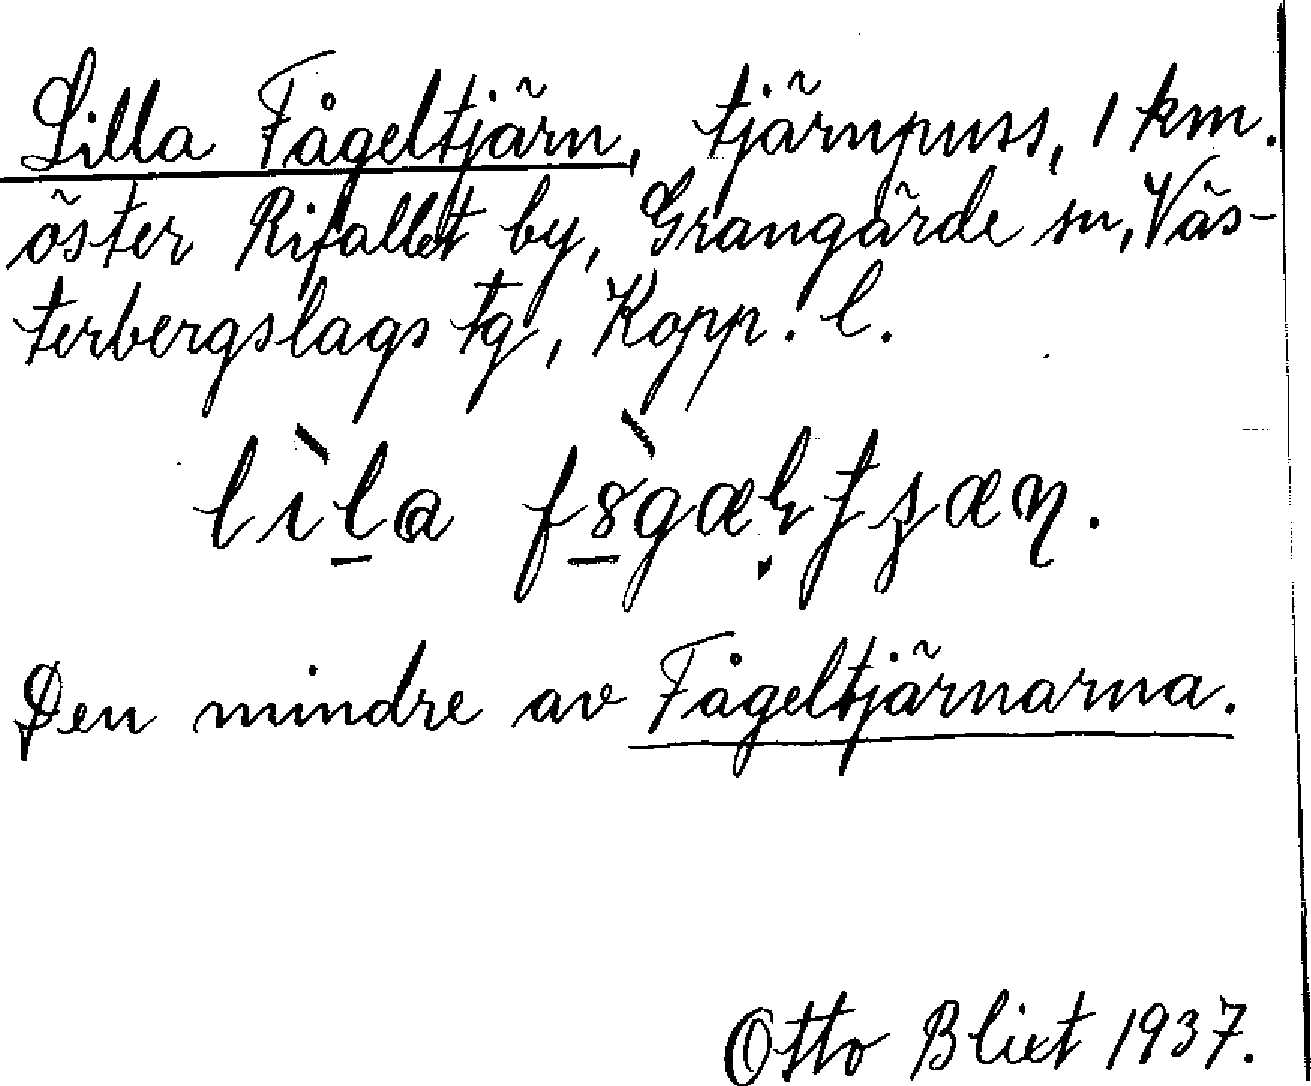 Lilla Fågeltjärn, tjärnpuss, 1 km.
öster Rifallet by, Grangärde sn, Väs-
terbergslags tg, Kopp. l.
Den mindre av Fågeltjärnarna.
Otto Blixt 1937.